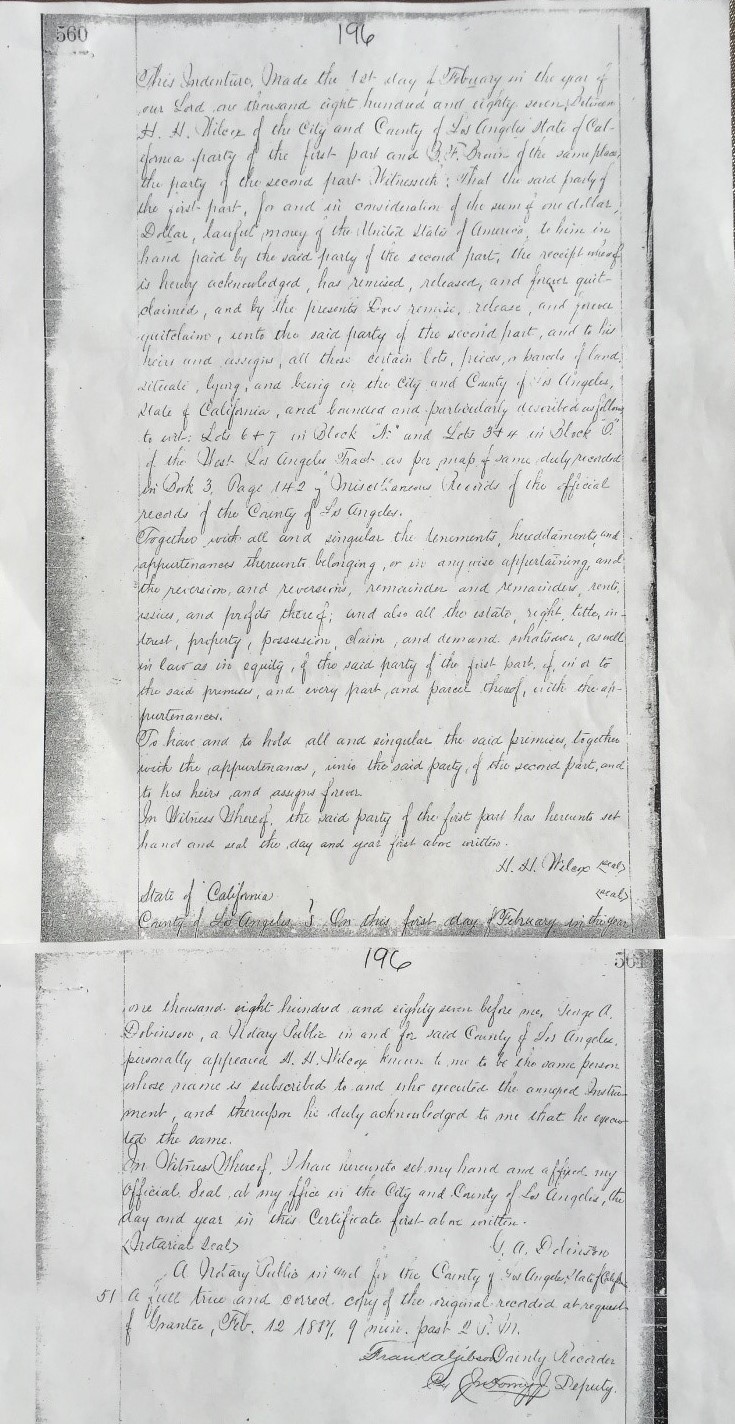 560
196
This Indenture, Made the 1st day of February in the year of
our Lord one thousand eight hundred and eighty seven, Between
H. H. Wilcox of the City and County of Los Angeles State of Cal-
ifornia party of the first part and B. F. of the same place,
the party of the second part Witnesseth: That the said party of
the first part, for and in consideration of the sum of one dollar,
Dollar, lawful money of the United States of America, to him in
hand paid by the said party of the second part, the receipt whereof
is hereby acknowledged, has remised, released, and forever quit-
claimed, and by the presents Does remise, release, and forever
quitclaim, unto the said party of the second part, and to his
heirs and assigns, all those certain lots, pieces, or parcels of land,
situate, lying, and being in the City and County of Los Angeles,
State of California, and bounded and particularly described as follows
to wit: Lots 6 + 7 in Block "N" and Lots 3 + 4 in Block "O"
of the West Los Angeles Tract as per map of same, duly recorded
in Book 3, Page 142 of Miscellaneous Records of the official
records of the County of Los Angeles.
Together with all and singular the tenements, hereditaments, and
appurtenances thereunto belonging, or in any wise appertaining, and
the reversion, and reversions, remainder and remainders, rents,
issues, and profits thereof; and also all the estate, right, title, in-
terest, property, possession, claim, and demand whatsoever, as well
in law as in equity, of the said party of the first part, of, in or to
the said premises, and every part, and parcel thereof, with the ap-
purtenances.
To have and to hold all and singular the said premises, together
with the appurtenances, unto the said party, of the second part, and
to his heirs and assigns forever.
In Witness Whereof, the said party of the first part has hereunto set
hand and seal the day and year first above written.
H. H. Wilcox <seal>
<seal>
State of California
County of Los Angeles } On this first day of February in the year
196
561
one thousand eight hundred and eighty seven before me, George A.
Dobinson, a Notary Public in and for said County of Los Angeles,
personally appeared H. H. Wilcox known to me to be the same person
whose name is subscribed to and who executed the annexed Instru-
ment, and thereupon he duly acknowledged to me that he execu-
ted the same.
In Witness Whereof, I have hereunto set my hand and affixed my
Official Seal at my office in the City and County of Los Angeles, the
day and year in this Certificate first above written.
<Notarial Seal>
G. A. Dobinson
A Notary Public in and for the County of Los Angeles, State of Califa
51 A full true and correct copy of the original recorded at request
of Grantee, Feb. 12 1887, 9 min. past 2 P. M.
Frank A Gibson County Recorder
By Deputy.